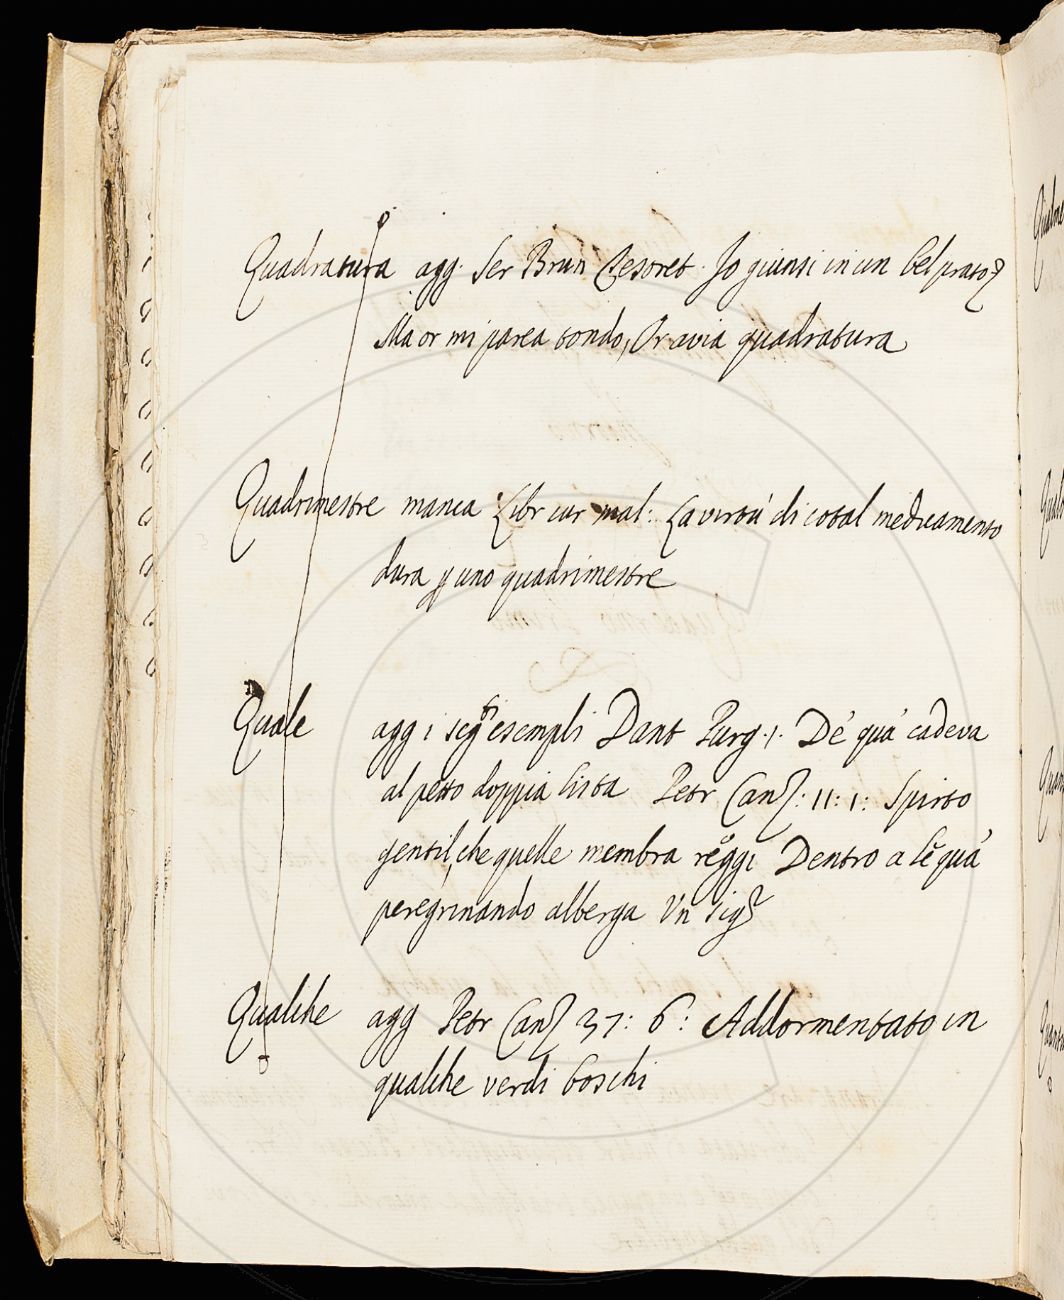 Quadratura agg. Ser Brun Tesoret. Io giunsi in un bel prato
Ma or mi parea tondo, Or avia quadratura
Quadrimestre manca Libr cur mal: La virtù di cotal medicamento
dura p uno quadrimestre
Quale agg i segti esempli Dant Purg. 1. De' qua' cadeva
al petto doppia lista Petr Canz: 11: 1: Spirto
gentil, che quelle membra reggi Dentro a le qua'
peregrinando alberga Un sigr
Qualche agg Petr Canz 37: 6: Addormentato in
qualche verdi boschi